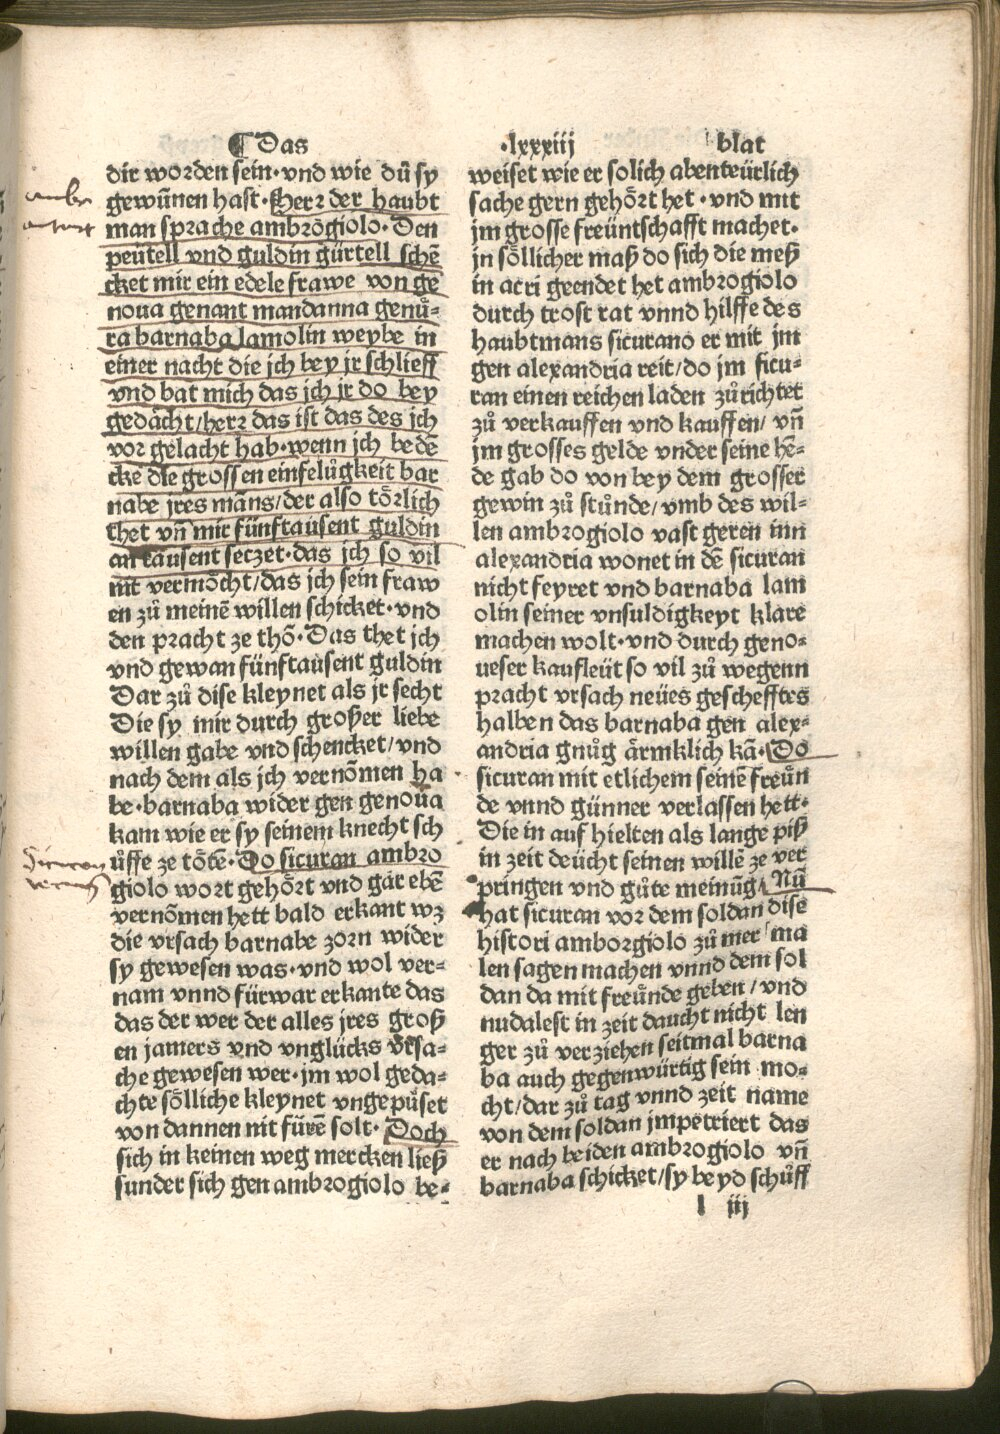 ¶ Das
dir worden sein·vnd wie dů sy
gewūnen hast·Herr der haubt
man sprache ambrogiolo·Den
peütell vnd guldin gürtell schē
cket mir ein edele frawe von ge
noua genant mandanna genů-
ra barnaba lamolin weybe in
einer nacht die jch bey jr schlieff
vnd bat mich das jch jr do bey
gedächt/herr das ist das des jch
vor gelacht hab·wenn jch be dē
cke die grossen einfelůgkeit bar
nabe jres mans/der also törlich
thet vn̄ mir fünftausent guldin
an tausent seczet·das jch so vil
nit vermöcht/das jch sein fraw
en zů meinē willen schicket·vnd
den pracht ze thō·Das thet jch
vnd gewan fünftausent guldin
Dar zů dise kleynet als jr secht
Die sy mir durch großer liebe
willen gabe vnd schencket/vnd
nach dem als jch vernōmen ha
be·barnaba wider gen genoua
kam wie er sy seinem knecht sch
ůffe ze tōte·Do sicuran ambro
giolo wort gehört vnd gar ebē
vernōmen hett bald erkant wz
die vrsach barnabe zorn wider
sy gewesen was·vnd wol ver-
nam vnnd fürwar erkante das
das der wer der alles jres groß
en jamers vnd vnglücks vrsa-
che gewesen wer·jm wol geda-
chte sölliche kleynet vngepüset
von dannen nit fürē solt·Doch
sich in keinen weg mercken ließ
sunder sich gen ambrogiolo be-
·lxxxiij blat
weiset wie er solich abenteürlich
sache gern gehört het·vnd mit
jm grosse freüntschafft machet·
jn söllicher maß do sich die meß
in acri geendet het ambrogiolo
durch trost rat vnnd hilffe des
haubtmans sicurano er mit jm
gen alexandria reit/do jm sicu-
ran einen reichen laden zůrichtet
zů verkauffen vnd kauffen/ vn̄
jm grosses gelde vnder seine hē-
de gab do von bey dem grosser
gewin zů stůnde/vmb des wil-
len ambrogiolo vast geren inn
alexandria wonet in dē sicuran
nicht feyret vnd barnaba lam
olin seiner vnsuldigkeyt klare
machen wolt·vnd durch geno-
ueser kaufleüt so vil zů wegenn
pracht vrsach neües gescheffts
halben das barnaba gen alex-
andria gnůg ärmklich kā·Do
sicuran mit etlichem seinē freün
de vnnd günner verlassen hett·
Die in auf hielten als lange piß
in zeit deücht seinen willē ze ver
pringen vnd gůte meinūg/Nū
hat sicuran vor dem soldan dise
histori amborgiolo zů mer ma
len sagen machen vnnd dem sol
dan da mit freünde geben/vnd
nudalest in zeit daucht nicht len
ger zů verziehen seitmal barna
ba auch gegenwürtig sein mo-
cht/dar zů tag vnnd zeit name
von dem soldan jmpetriert das
er nach beiden ambrogiolo vn̄
barnaba schicket/sy beyd schůff
l iij